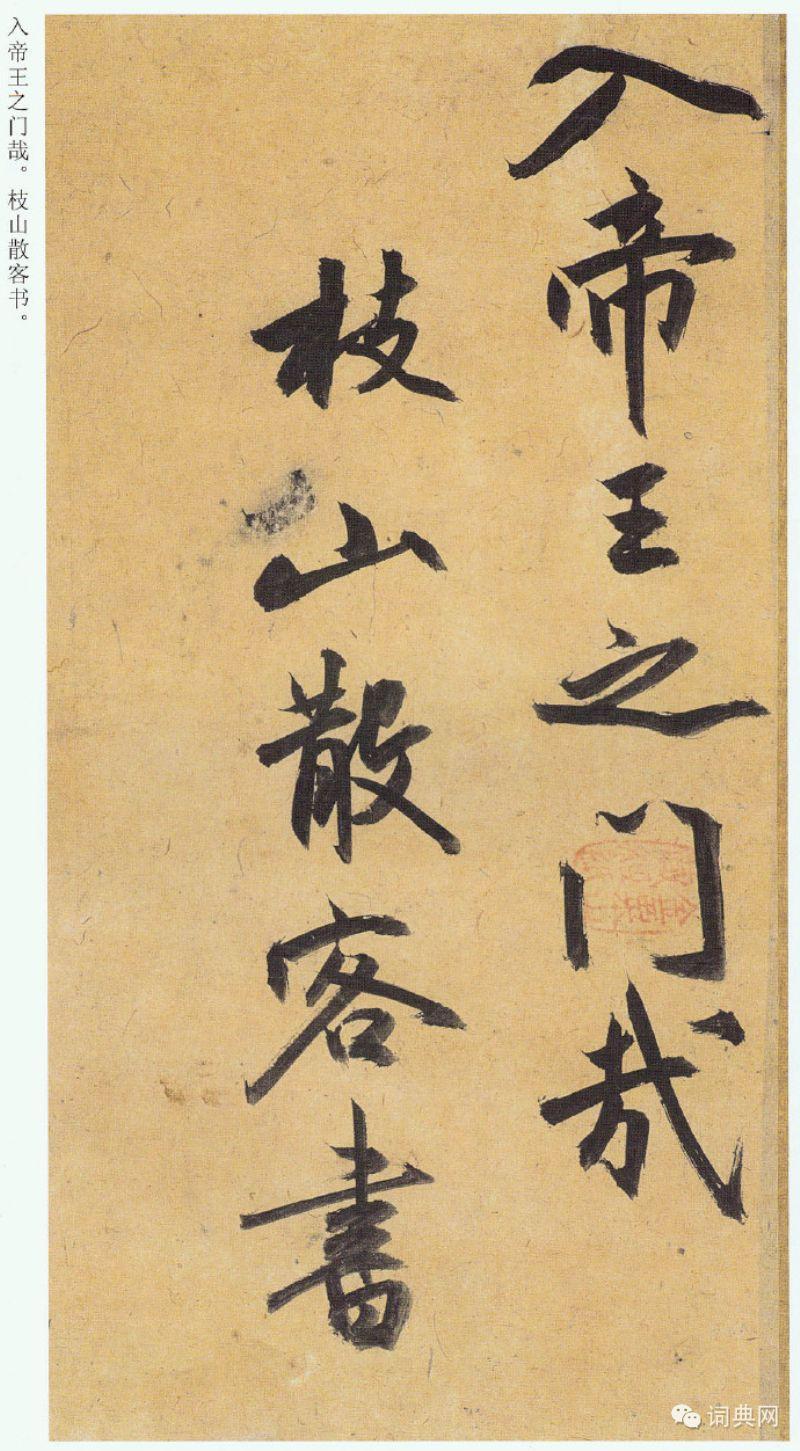 入帝王之门哉
枝山散客書
入帝王之门哉。枝山散客书。
词典网